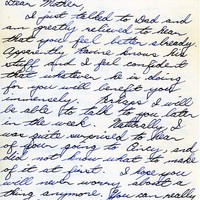 Dear Mother,
I just talked to Dad and
am greatly relieved to hear
that you feel better already.
Apparently Maine knows his
stuff and I feel confident
that whatever he is doing
for you will benefit you
immensely. Perhaps I will
be able to talk to you later
in the week. Naturally, I
was quite surprised to hear
of your going to Quincy, and
did not know what to make
of it at first. I hope you
will never worry about a
thing anymore. You can really